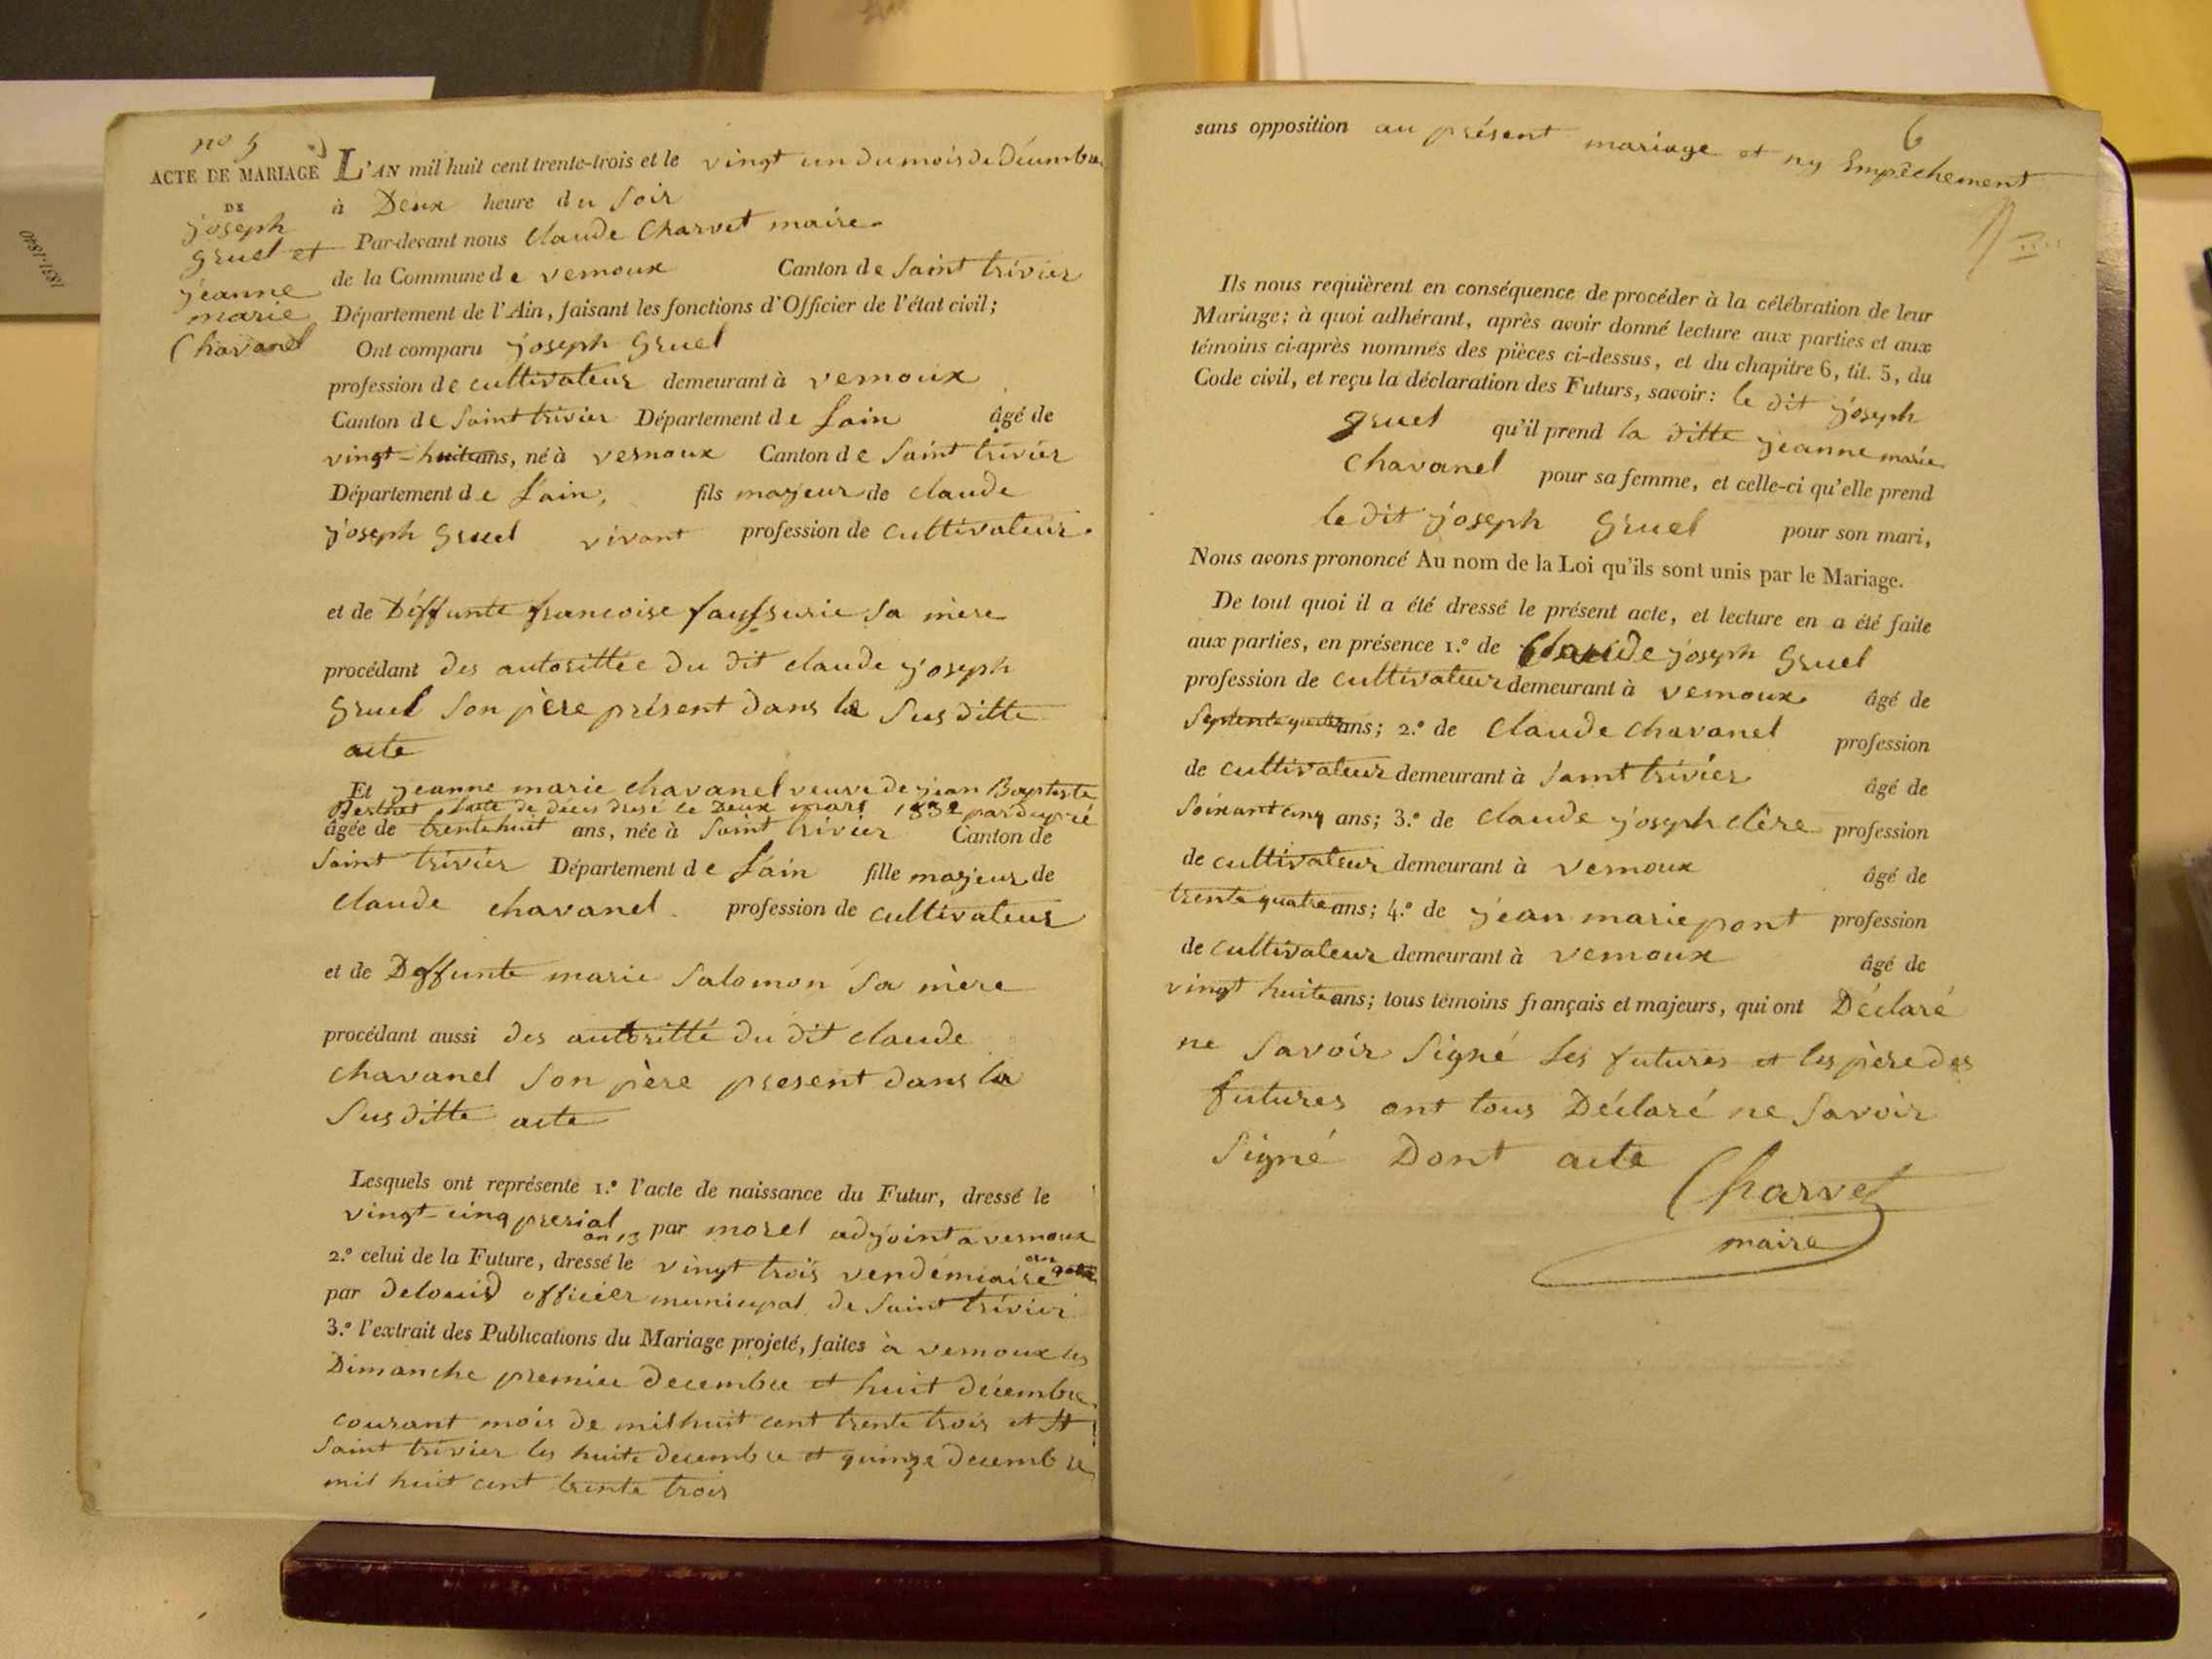 no 5
ACTE DE MARIAGE
DE
joseph
gruel et
jeanne
marie
Chavanel
L'AN mil huit cent trente-trois et le vingt un du mois de Décembre
à Deux heure du soir
Par-devant nous Claude Charvet maire
de la Commune de vernoux Canton de Saint trivier
Département de l'Ain, faisant les fonctions d'Officier de l'état civil;
Ont comparu joseph gruel
profession de cultivateur demeurant à vernoux
Canton de Saint trivier Département de Lain âgé de
vingt-huit ans, né à vernoux Canton de Saint trivier
Département de Lain, fils majeur de claude
joseph gruel vivant profession de cultivateur.
et de Déffunte francoise sa mère
procédant des autorittée du dit claude joseph
gruel son père présent dans la Sus ditte
acte
Et jeanne marie chavanel veuve de jean Baptiste
de déces dresé le Deux mars 1832 par dupré
âgée de trente huit ans, née à Saint trivier Canton de
Saint trivier Département de Lain fille majeur de
claude chavanel profession de cultivateur
et de Deffunte marie Salomon sa mère
procédant aussi des autoritté du dit claude
chavanel son père present dans la
Sus ditte acte
Lesquels ont représente 1.º l'acte de naissance du Futur, dressé le
vingt-cinq prerial an 13 par morel adjoint a vernoux
2.º celui de la Future, dressé le vingt trois vendémiaire an
par delouid officier municipal de Saint trivier
3.º l'extrait des Publications du Mariage projeté, faites à vernoux les
Dimanche premier decembre et huit décembre
courant mois de mil huit cent trente trois et
Saint trivier les huite decembre et quinze decembre
mil huit cent trente trois
6
sans opposition au présent mariage et ny Empêchement
Ils nous requièrent en conséquence de procéder à la célébration de leur
Mariage; à quoi adhérant, après avoir donné lecture aux parties et aux
témoins ci-après nommés des pièces ci-dessus, et du chapitre 6, tit. 5, du
Code civil, et reçu la déclaration des Futurs, savoir: le dit joseph
gruel qu'il prend la ditte jeanne marie
chavanel pour sa femme, et celle-ci qu'elle prend
le dit joseph gruel pour son mari,
Nous avons prononcé Au nom de la Loi qu'ils sont unis par le Mariage.
De tout quoi il a été dressé le présent acte, et lecture en a été faite
aux parties, en présence 1.º de Claude joseph gruel
profession de cultivateur demeurant à vernoux âgé de
ans; 2.º de claude chavanel profession
de cultivateur demeurant à Saint trivier âgé de
Soixant cinq ans; 3.º de claude joseph clère profession
de cultivateur demeurant à vernoux âgé de
trente quatre ans; 4.º de jean marie pont profession
de cultivateur demeurant à vernoux âgé de
vingt huite ans; tous témoins français et majeurs, qui ont Déclaré
ne savoir Signé Les futures et les père des
futures ont tous Déclaré ne Savoir
Signé Dont acte
Charvet
maire
1831-1840